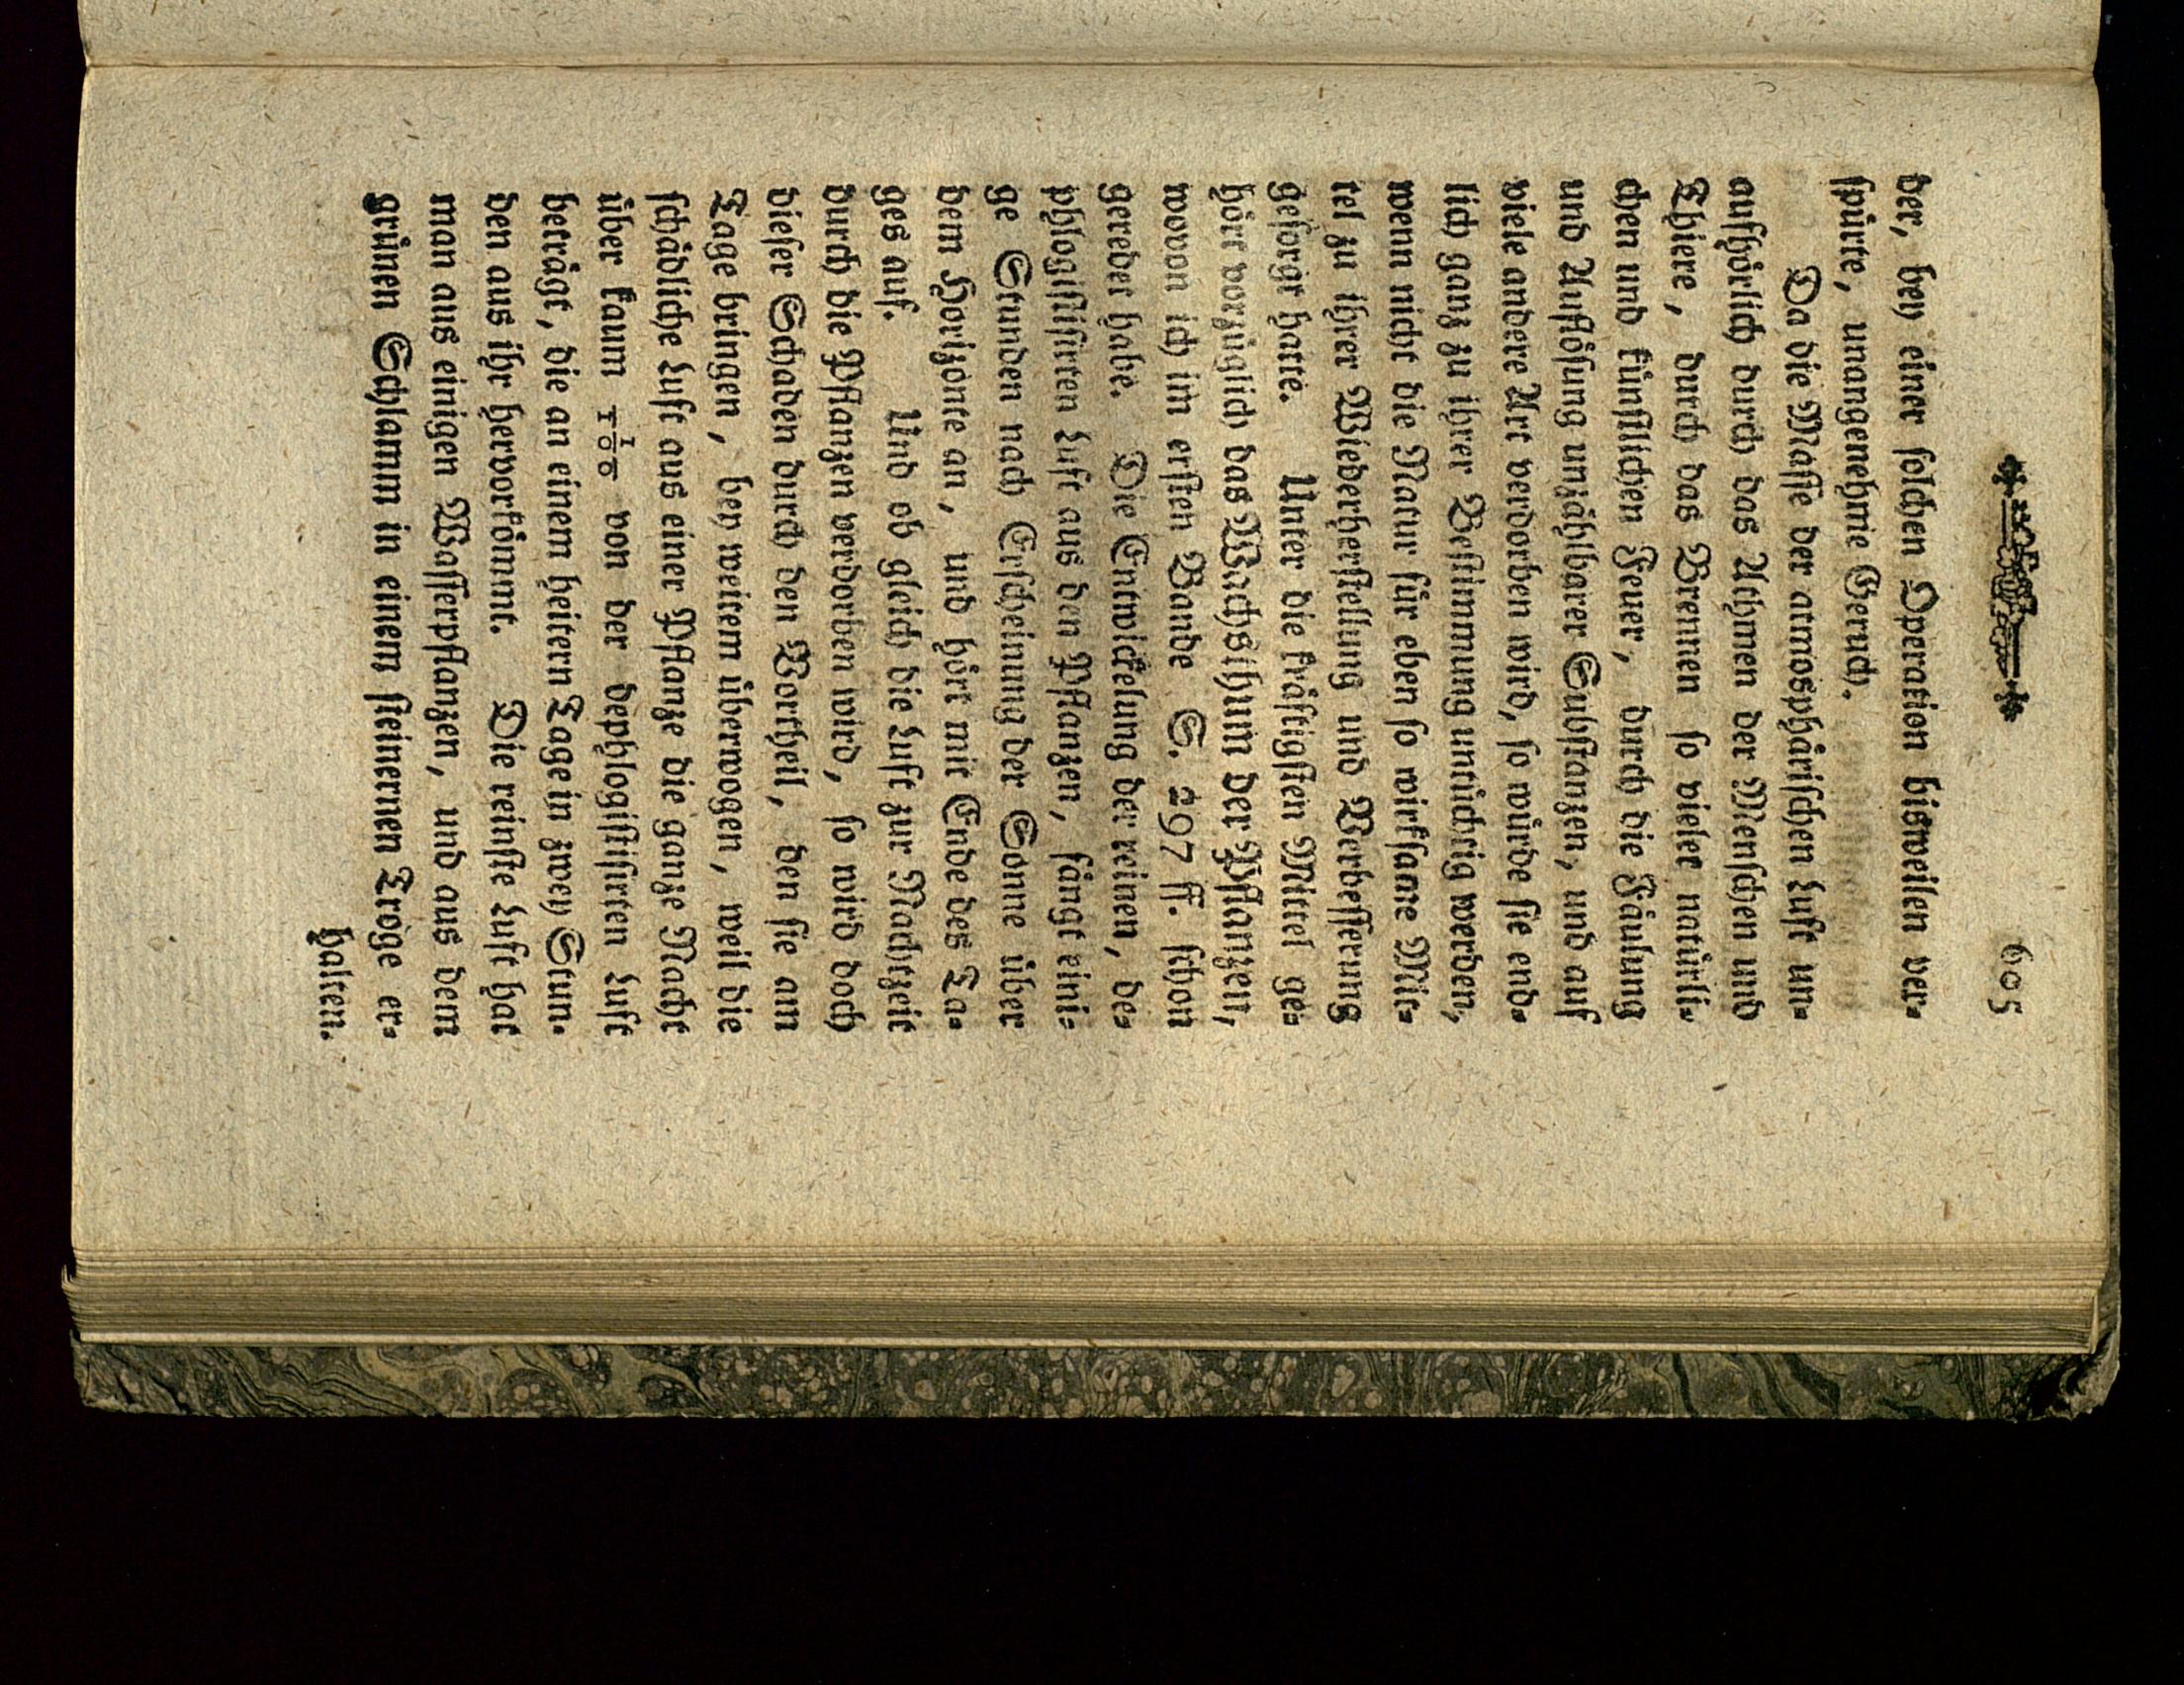 605
der, bey einer solchen Operation bisweilen ver-
spürte, unangenehme Geruch.
Da die Masse der atmosphärischen Luft un-
aufhörlich durch das Athmen der Menschen und
Thiere, durch das Brennen so vieler natürli-
chen und künstlichen Feuer, durch die Fäulung
und Auflösung unzählbarer Substanzen, und auf
viele andere Art verdorben wird, so würde sie end-
lich ganz zu ihrer Bestimmung untüchtig werden,
wenn nicht die Natur für eben so wirksame Mit-
tel zu ihrer Wiederherstellung und Verbesserung
gesorgt hätte. Unter die kräftigsten Mittel ge-
hört vorzüglich das Wachsthum der Pflanzen,
wovon ich im ersten Bande S. 297 ff. schon
geredet habe. Die Entwickelung der reinen, de-
phlogistisirten Luft aus den Pflanzen, fängt eini-
ge Stunden nach Erscheinung der Sonne über
dem Horizonte an, und hört mit Ende des Ta-
ges auf. Und ob gleich die Luft zur Nachtzeit
durch die Pflanzen verdorben wird, so wird doch
dieser Schaden durch den Vortheil, den sie am
Tage bringen, bey weitem überwogen, weil die
schädliche Luft aus einer Pflanze die ganze Nacht
über kaum 1/100 von der dephlogistisirten Luft
beträgt, die an einem heitern Tage in zwey Stun-
den aus ihr hervorkömmt. Die reinste Luft hat
man aus einigen Wasserpflanzen, und aus dem
grünen Schlamm in einem steinernen Troge er-
halten.